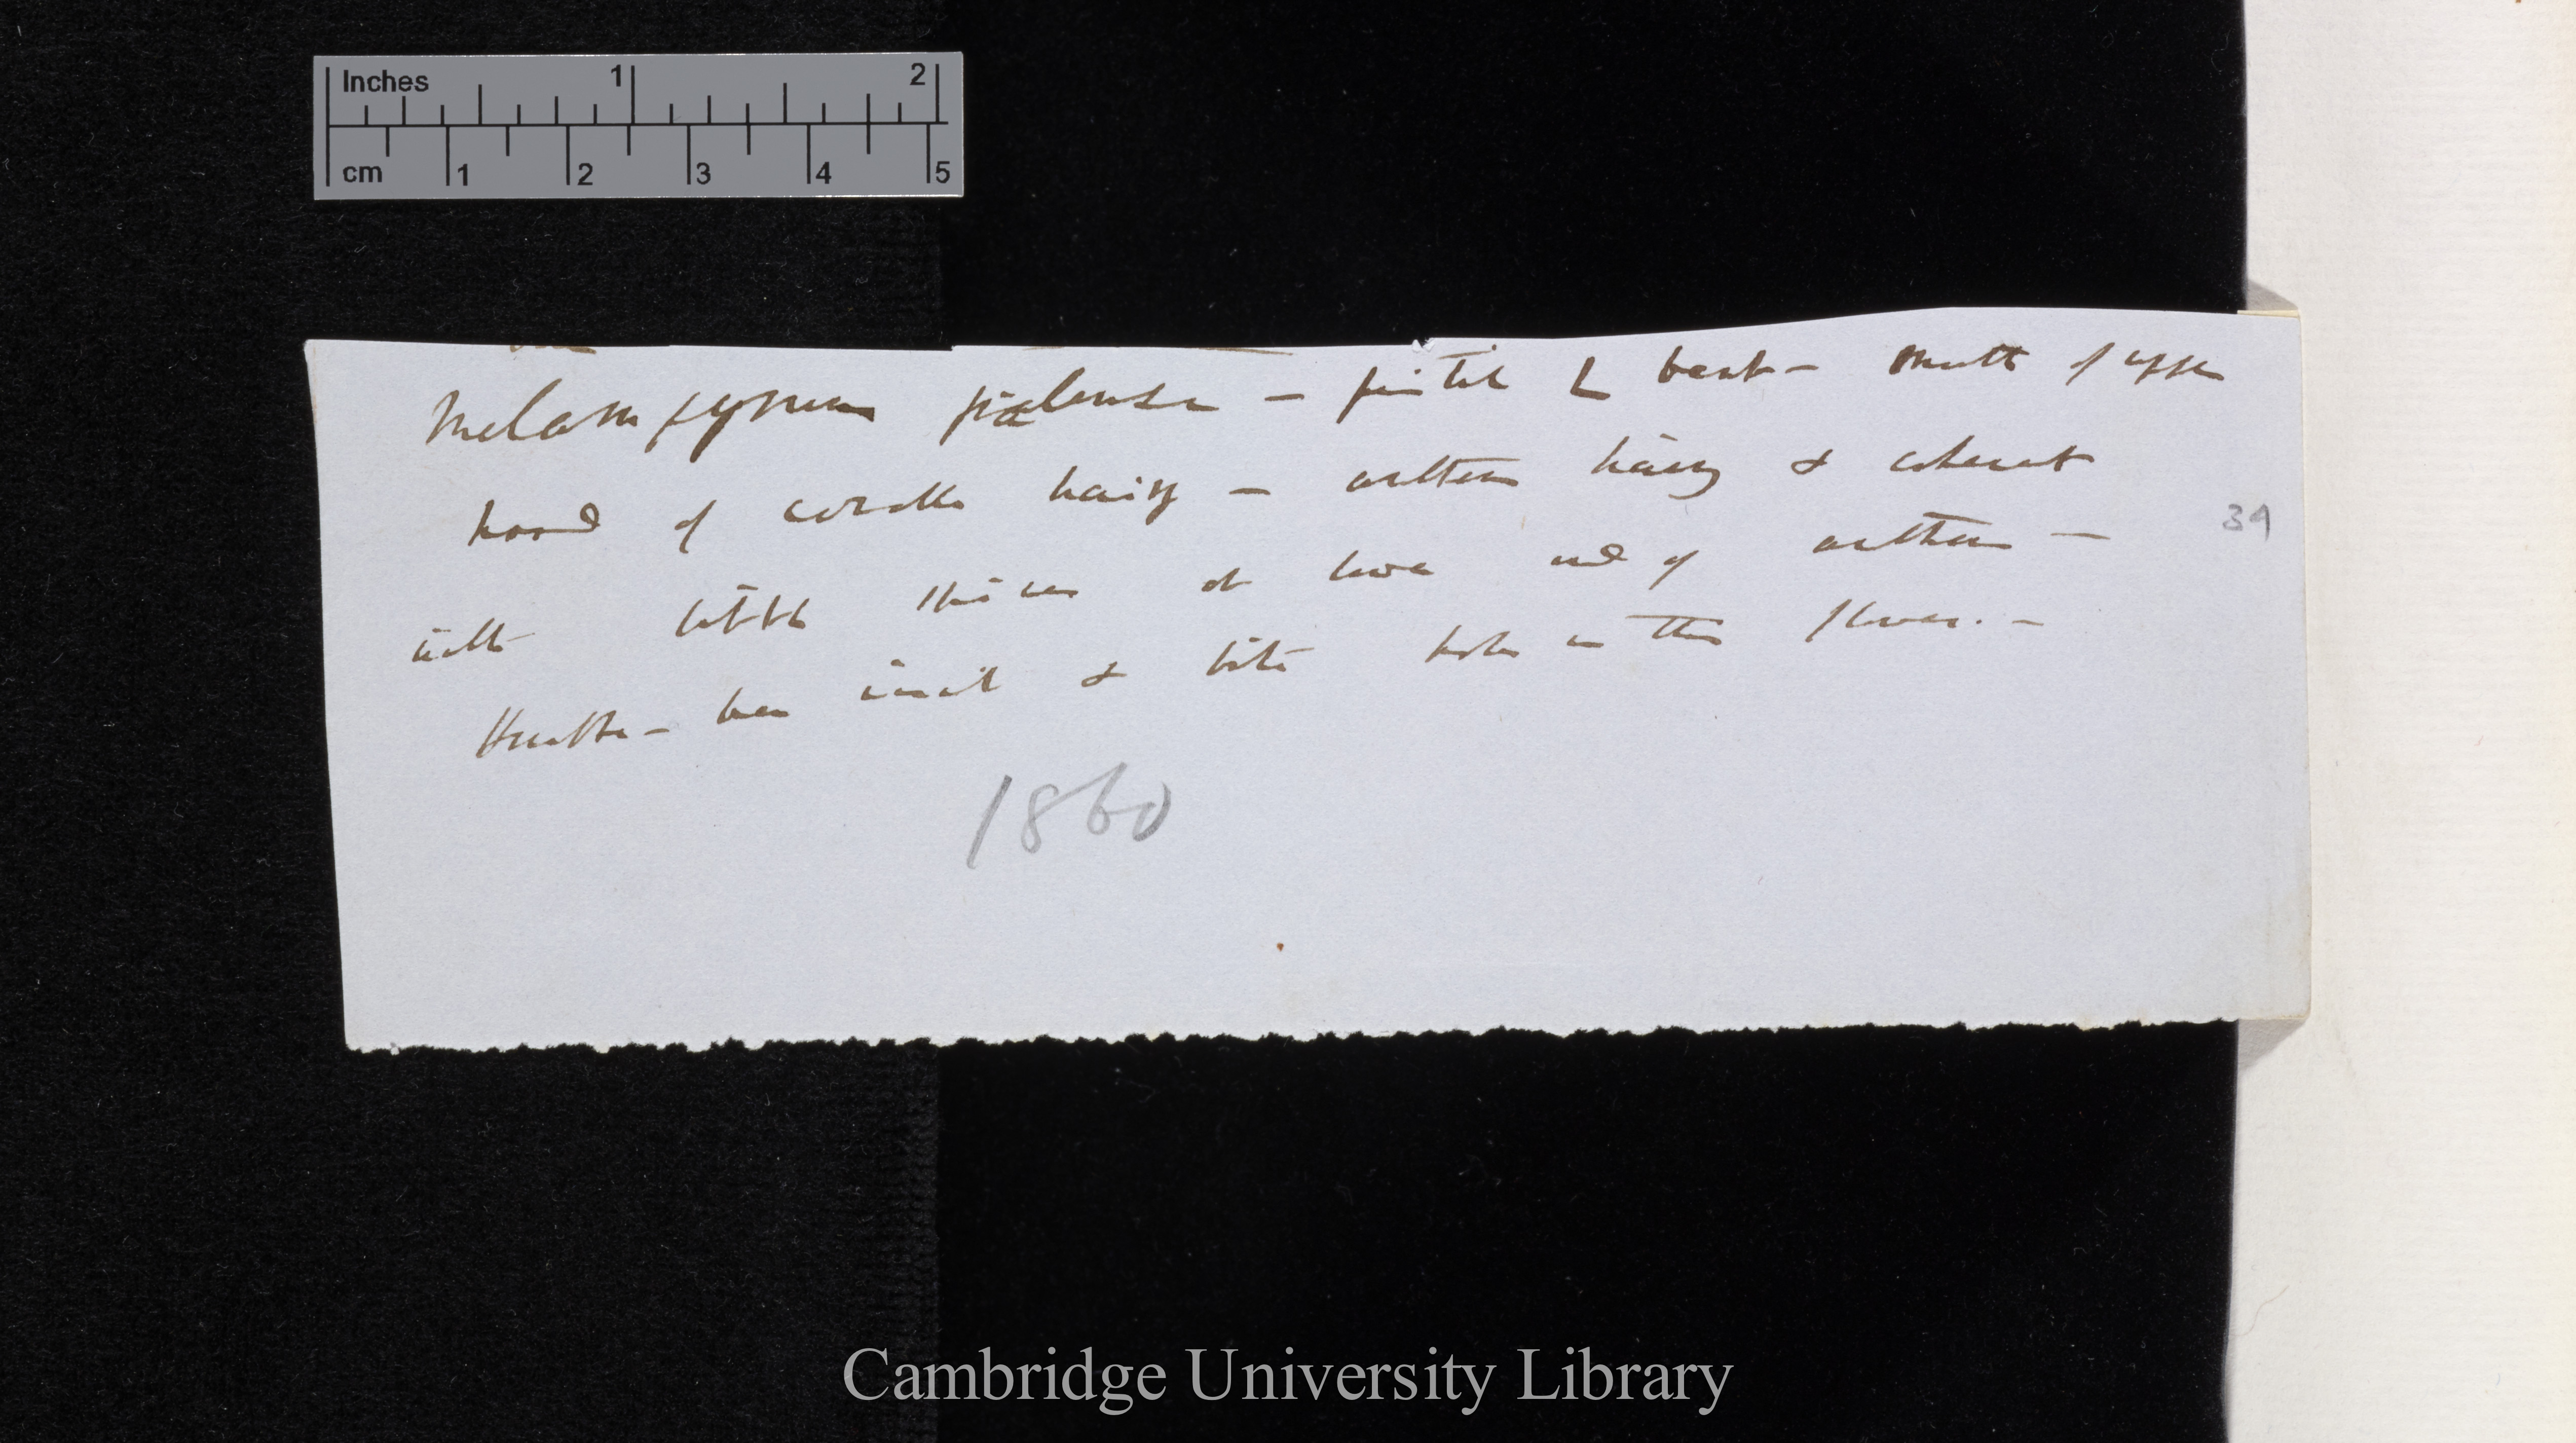 Inches 1 2
cm 1 2 3 4 5
Melampyrum pratense — pistil L bent — mouth of upper
hood of corolla hairy — anthers hairy & coherent
with little spines at lower end of anthers —
bees visit & bite holes in the flower. —
1860
39
Cambridge University Library